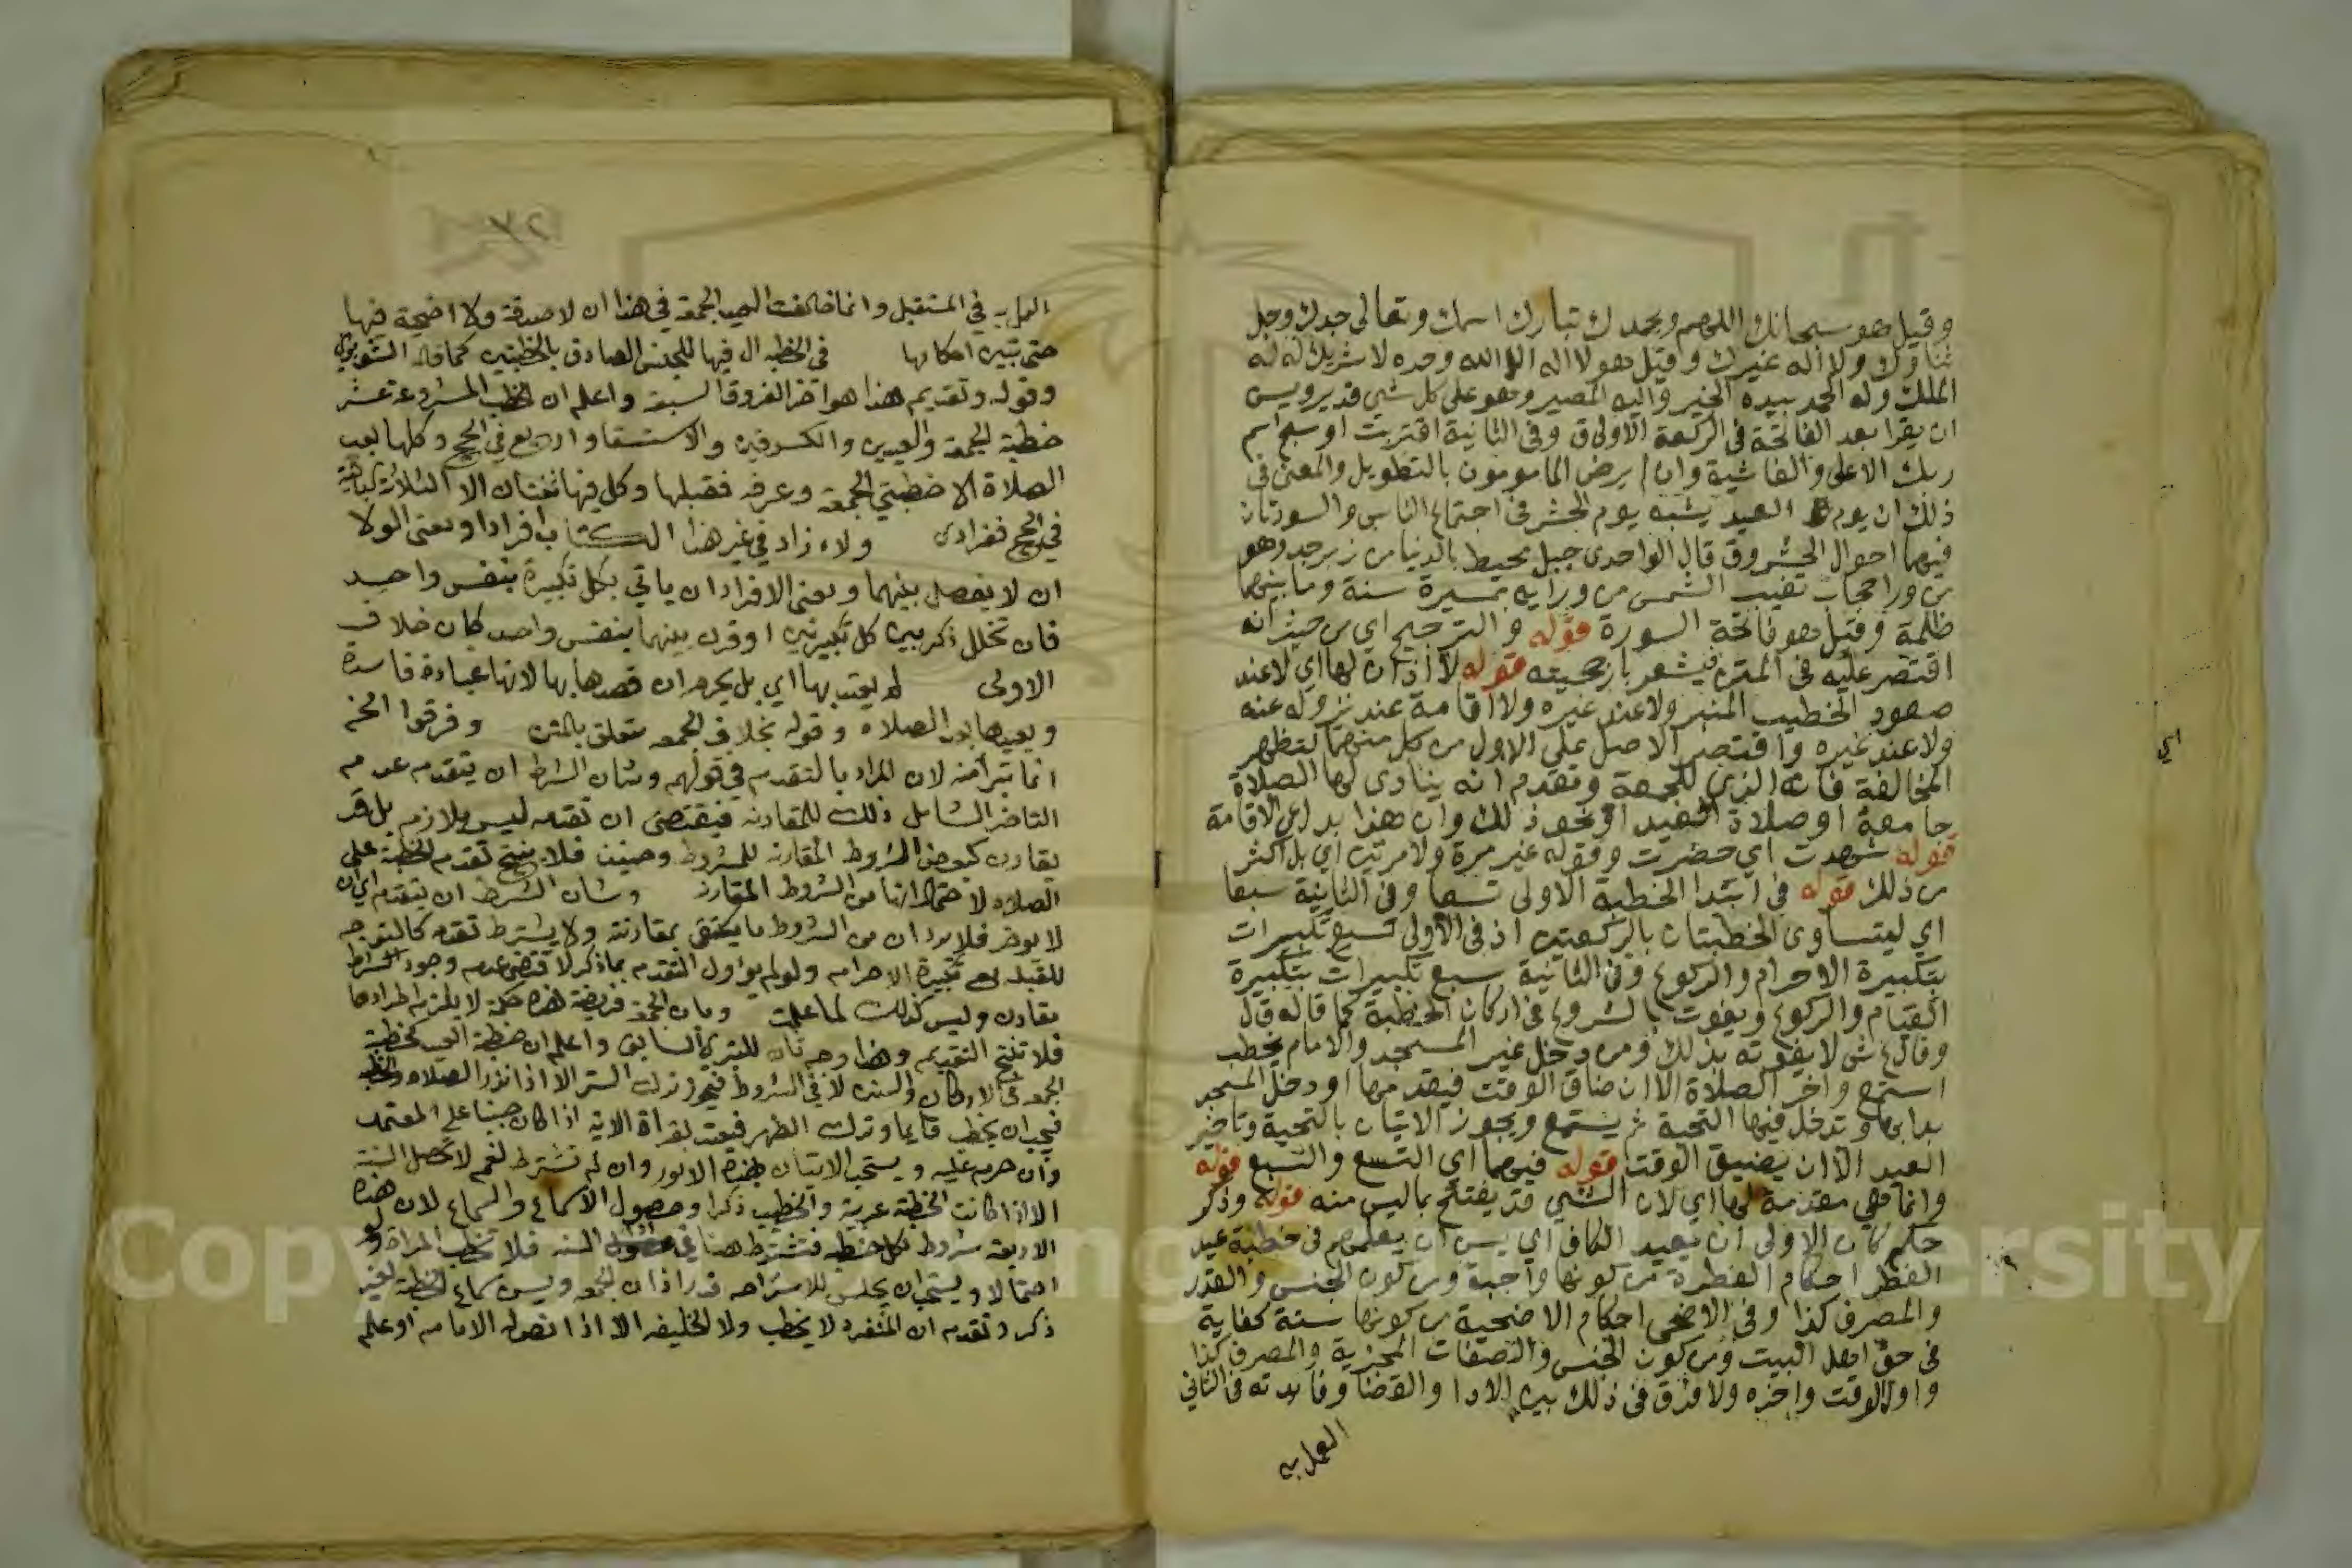 وقيل هو سبحانك اللهم وبحمدك تبارك اسمك وتعالى جدك وجل
ثناوك ولا اله غيرك وقيل هو لا اله الا الله وحده لا شريك له له
الملك وله الحمد بيده الخير واليه المصير وهو على كل شي قدير ويسن
ان يقرا بعد الفاتحة في الركعة الاولى ق وفي الثانية اقتربت او سبح اسم
ربك الاعلى والغاشية وان لم يرض المامومون بالتطويل والمعنى في
ذلك ان يوم العيد يشبه يوم الحشر في اجتماع الناس والسورتان
فيهما احوال الحشر وق قال الواحدي جبل محيط بالدنيا من زبرجد وهو
من ورا حجاب تغيب الشمس من ورايه بمسيرة سنة وما بينهما
ظلمة وقيل هو فاتحة السورة قوله والترجيح اي من حيث انه
اقتصر عليه في المتن فيشعر بارجحيته قوله لا اذان لها اي لا عند
صعود الخطيب المنبر ولا عند غيره ولا اقامة عند نزوله عنه
ولا عند غيره واقتصر الاصل على الاول من كل منهما لتظهر
المخالفة فانه الذي للجمعة وتقدم انه ينادى لها الصلاة
جامعة او صلاة العيد او نحو ذلك وان هذا بدل عن الاقامة
قوله شهدت اي حضرت وقوله غير مرة ولا مرتين اي بل اكثر
من ذلك قوله في ابتدا الخطبة الاولى تسعا وفي الثانية سبعا
اي ليتساوى الخطبتان بالركعتين اذ في الاولى تسع تكبيرات
بتكبيرة الاحرام والركوع وفي الثانية سبع تكبيرات بتكبيرة
القيام والركوع ويفوت بالشروع في اركان الخطبة كما قاله
وقال ع ش لا يفوته بذلك ومن دخل غير المسجد والامام يخطب
استمع واخر الصلاة الا ان ضاق الوقت فيقدمها او دخل المسجد
بدا بها وتدخل فيها التحية ثم يستمع ويجوز الاتيان بالتحية وتاخير
العيد الا ان يضيق الوقت قوله فيهما اي التسع والسبع قوله
وانما هي مقدمة لها اي لان الشي قد يفتتح بما ليس منه قوله وذكر
حكم كان الاولى ان يعيد الكاف اي يسن ان يعلمهم في خطبة عيد
الفطر احكام الفطرة من كونها واجبة ومن كون الجنس والقدر
والمصرف كذا وفي الاضحى احكام الاضحية من كونها سنة كفاية
في حق اهل البيت ومن كون الجنس والصفات المجزية والمصرف كذا
واول الوقت واخره ولا فرق في ذلك بين الادا والقضا وفايدته في الثاني
العمل به
اي
العمل به في المستقبل وانما خالفت العيد الجمعة في هذا ان لا صدقة ولا اضحية فيها
حتى تبين احكامها في الخطبة ال فيها للجنس الصادق بالخطبتين كما قاله الشوبري
وقوله وتقديم هذا هو اخر الفروق السبعة واعلم ان الخطب المشروعة عشر
خطبة الجمعة والعيدين والكسوفين والاستسقا واربع في الحج وكلها بعد
الصلاة الا خطبتي الجمعة وعرفه فقبلها وكل فيها ثنتان الا الثلاثة الباقية
في الحج ففرادى ولاء زاد في غير هذا الكتاب افرادا ومعنى الولا
ان لا يفصل بينهما ومعنى الافراد ان ياتي بكل تكبيرة بنفس واحد
فان تخلل ذكر بين كل تكبيرتين او قرن بينهما بنفس واحد كان خلاف
الاولى لم يعتد بها اي بل يحرم ان قصدها بها لانها عبادة فاسدة
ويعيدها بعد الصلاه وقوله بخلاف الجمعه متعلق بالمتن وفرقوا الخ
انما تبرا منه لان المراد بالتقدم في قولهم وشان الشرط ان يتقدم عدم
التاخر الشامل ذلك للمقارنه فيقتضي ان تقدمه ليس بلازم بل قد
يقارن كبعض الشروط المقارنه للمشروط وحينئذ فلا ينتج تقدم الخطبة على
الصلاه لاحتمال انها من الشروط المقارنة وشان الشرط ان يتقدم اي ان
لا يوخر فلا يرد ان من الشروط ما يكتفى بمقارنته ولا يشترط تقدمه كالتوجه
للقبله مع تكبيرة الاحرام ولو لم يؤول التقدم بما ذكر لاقتضى عدم وجود شرط
مقارن وليس كذلك لما علمت وبان الجمعة فريضة هذه حكمة لا يلزم اطرادها
فلا تنتج التقديم وهذا وجه ثان للتبري السابق واعلم ان خطبة العيد كخطبة
الجمعه في الاركان والسنن لا في الشروط فيجوز ترك الستر الا اذا نذر الصلاه والخطبة
فيجب ان يخطب قايما وترك الطهر فيعتد بقراة الاية اذا كان جنبا على المعتمد
وان حرم عليه ويستحب الاتيان بهذه الامور وان لم تشترط نعم لا تحصل السنة
الا اذا كانت الخطبة عربية والخطيب ذكرا وحصول الاسماع والسماع لان هذه
الاربعه شروط لكل خطبه فتشترط هنا في حصول السنه فلا تخطب المراة ولو
احتمالا ويستحب ان يجلس للاستراحه قدر اذان الجمعه ويسن سماع الخطبة لغير
ذكر وتقدم ان المنفرد لا يخطب ولا الخليفه الا اذا تصوله الامام او علم